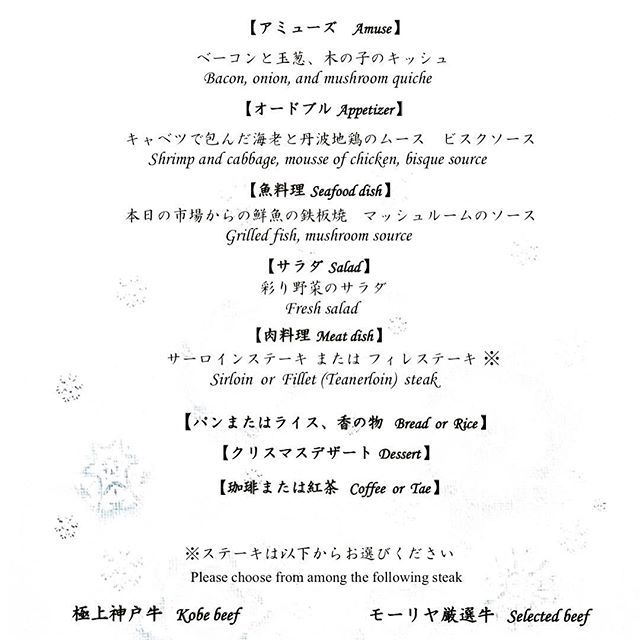 【アミューズ Amuse】
ベーコンと玉葱、木の子のキッシュ
Bacon, onion, and mushroom quiche
【オードブル Appetizer】
キャベツで包んだ海老と丹波地鶏のムース ビスクソース
Shrimp and cabbage, mousse of chicken, bisque source
【魚料理 Seafood dish】
本日の市場からの鮮魚の鉄板焼 マッシュルームのソース
Grilled fish, mushroom source
【サラダ Salad】
彩り野菜のサラダ
Fresh salad
【肉料理 Meat dish】
サーロインステーキ または フィレステーキ ※
Sirloin or Fillet (Teanerloin) steak
【パンまたはライス、香の物 Bread or Rice】
【クリスマスデザート Dessert】
【珈琲または紅茶 Coffee or Tae】
※ステーキは以下からお選びください
Please choose from among the following steak
極上神戸牛 Kobe beef モーリヤ厳選牛 Selected beef